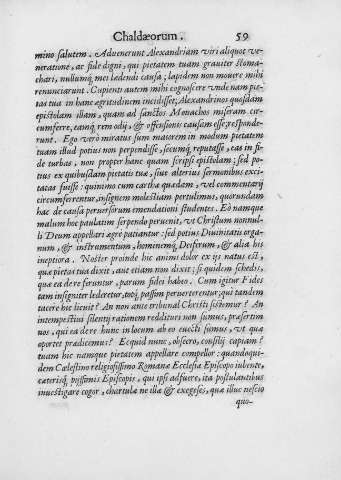 Chaldæorum. 59
mino salutem. Aduenerunt Alexandriam viri aliquot ve-
neratione, ac fide digni, qui pietatem tuam grauiter stoma-
chari, nullumq; mei lædendi causa; lapidem non mouere mihi
renunciarunt. Cupienti autem mihi cognoscere vnde nam pie-
tas tua in hanc ægritudinem incidisset, Alexandrinos quosdam
epistolam illam, quam ad sanctos Monachos miseram cir-
cumferre, eamq; rem odij, & offensionis causam esse; responde-
runt. Ego verò miratus sum maiorem in modum pietatem
tuam illud potius non perpendisse, secumq; reputasse, eas in fi-
de turbas, non propter hanc quam scripsi epistolam; sed po-
tius ex quibusdam pietati tuæ, siue alterius sermonibus exci-
tatas fuisse: quinimo cum cartha quædam, vel commentarij
circumferrentur, insignem molestiam pertulimus, quorundam
hac de causa peruersorum emendationi studentes. Eò namque
malum hoc paulatim serpendo peruenit, vt Christum nonnul-
li Deum appellari ægrè patiantur: sed potius Diuinitatis orga-
num, & instrumentum, hominemq; Deiferum, & alia his
ineptiora. Noster proinde hic animi dolor ex ijs natus est,
quæ pietas tua dixit, aut etiam non dixit; si quidem schedis,
quæ ea de re feruntur, parum fidei habeo. Cum igitur Fides
tam insigniter læderetur, totq; passim peruerterentur, qui tandem
tacere hic licuit? An non ante tribunal Christi sistemur? An
intempestiui silentij rationem reddituri non sumus, præsertim
nos, qui ea de re hunc in locum ab eo euecti sumus, vt quæ
oportet prædicemus? Ecquid nunc, obsecro, consilij capiam?
tuam hic namque pietatem appellare compellor: quandoqui-
dem Cælestino religiosissimo Romanæ Ecclesiæ Episcopo iubente,
cæterisq; pijssimis Episcopis, qui ipsi adfuere, ita postulantibus
inuestigare cogor, chartulæ ne illæ & exegeses, quæ illuc nescio
quo-